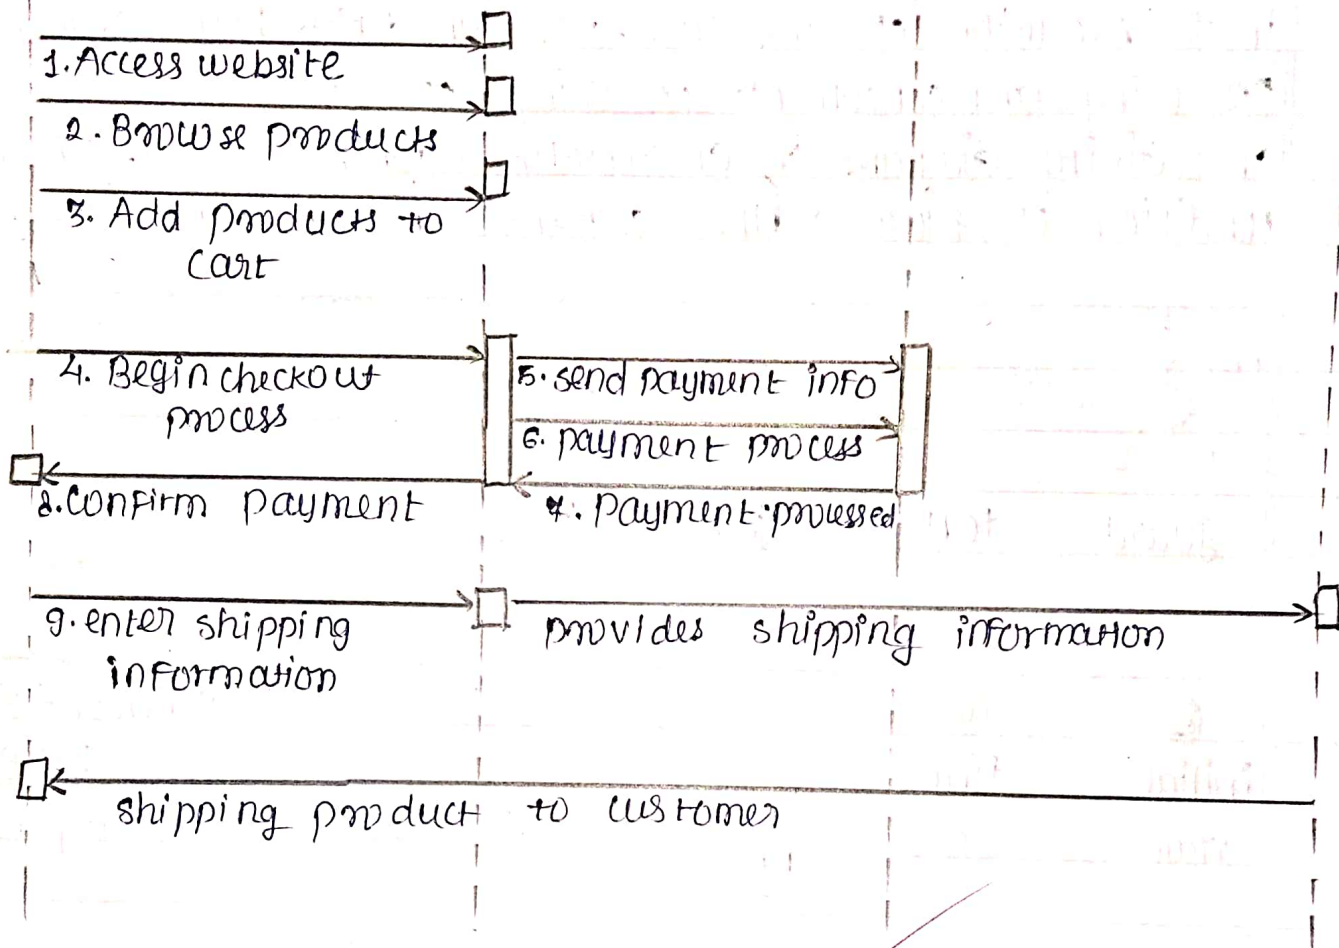 1. Access website
2. Browse products
3. Add products to
cart
4. Begin checkout
process
5. send payment info
6. payment process
7. Payment processed
8. Confirm payment
9. enter shipping
information
provides shipping information
shipping product to customer